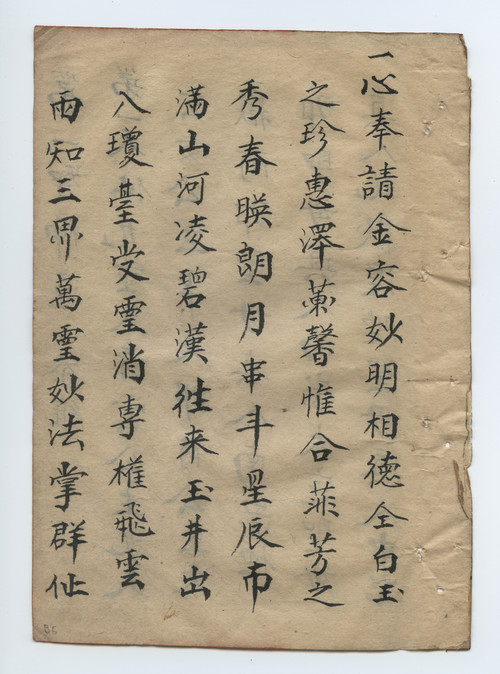 一心奉請金容妙明相德全白玉
之珍惠澤蘭馨惟合菲芳之
秀春暎朗月串斗星辰布
滿山河凌碧漢徃来玉井出
入瓊臺受𩄇消專權飛雲
雨知三界萬𩄇妙法掌群仙